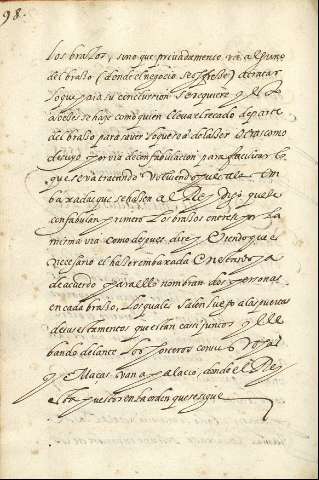 98.
los brassos, sino que privadamente va al puno
del brasso (donde el negocio se ofresse) a tratar
lo que para su conclussion se requiere y
a veces se haze como quien lleva el recado de parte
del brasso para saver lo que se a de hazer como
de suyo y por via de confabulacion para facilitar lo
que se va tratando Volviendo pues a la em
baxada que se haze a el Rey digo que se
confabulan primero los brassos entre si por la
misma via como despues dire y siendo que es
necesario el hazer embaxada
de acuerdo para ello nombran dos personas
en cada brasso, los quales salen luego a las puertas
de sus estamentos que estan casi juntos y lle
bando delante los porteros con sus Vojas
y Massas van a palacio, donde el Rey
esta puestos en la orden que se sigue